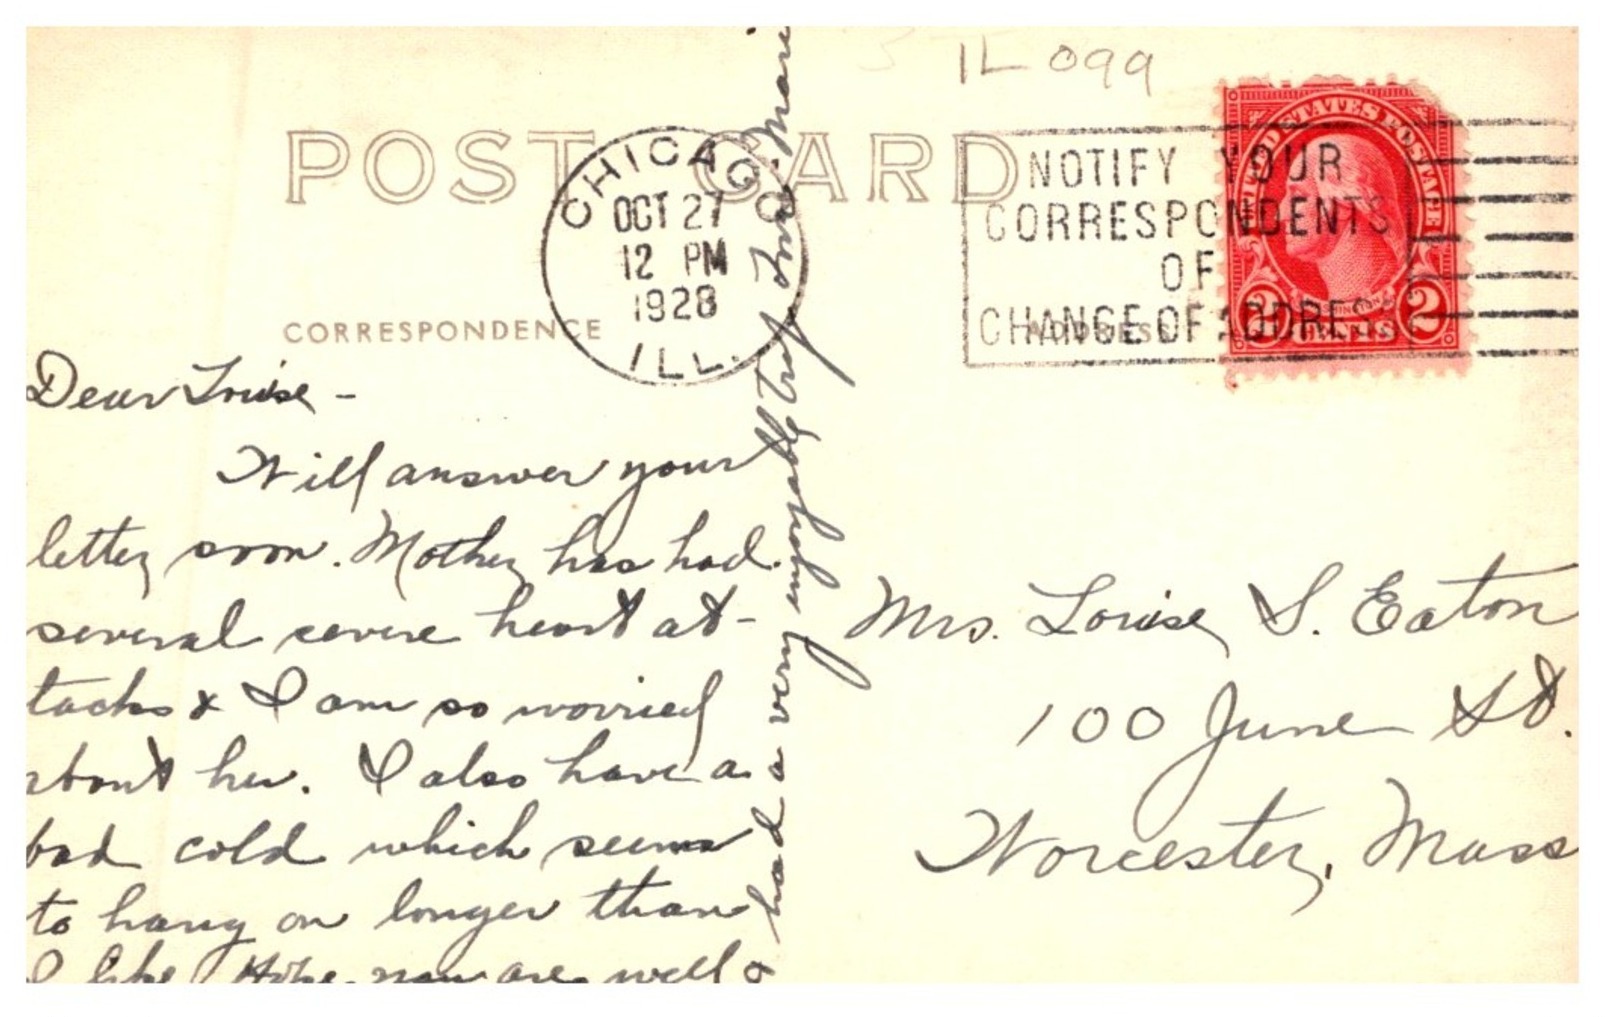 IL 099
POST CARD
CHICAGO
OCT 27
12 PM
1928
ILL.
NOTIFY YOUR
CORRESPONDENTS
OF
CHANGE OF ADDRESS
UNITED STATES POSTAGE
WASHINGTON
2 CENTS 2
CORRESPONDENCE
ADDRESS
Dear Louise -
Will answer your
letter soon. Mother has had
several severe heart at-
tacks & I am so worried
about her. I also have a
bad cold which seems
to hang on longer than
I like. Hope you are well &
had a very enjoyable trip. Love Marie
Mrs. Louise S. Eaton
100 June St.
Worcester, Mass